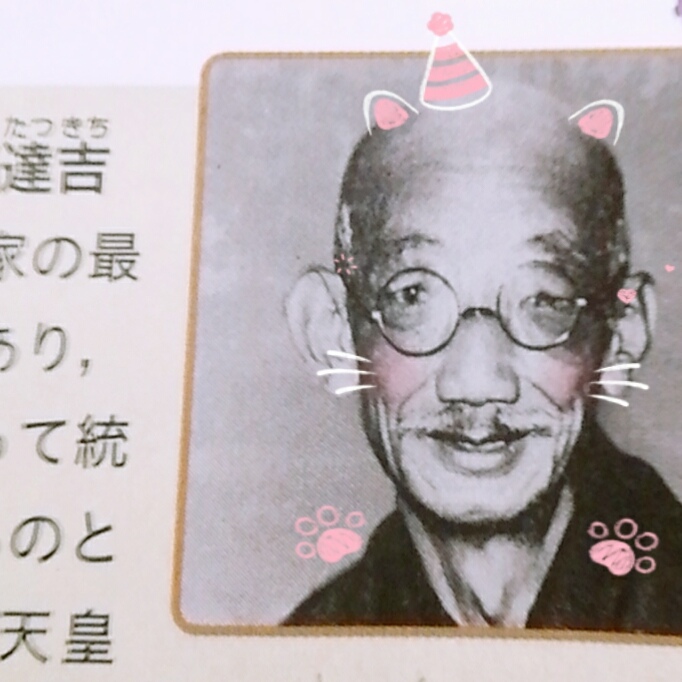 たつきち
達吉
家の最
あり，
って統
のと
天皇